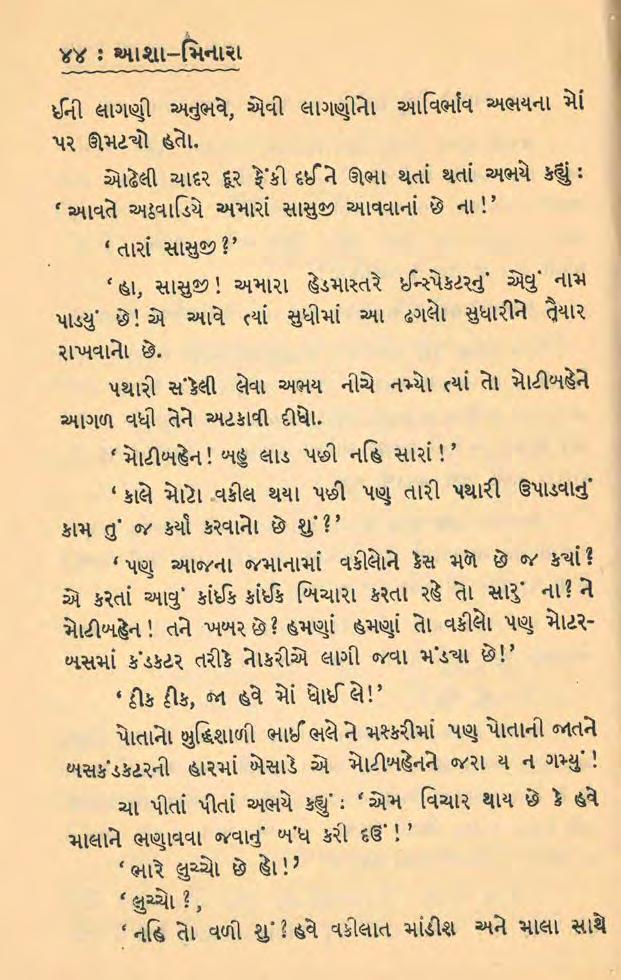 ૪૪ : આશા–મિનારા
ઈની લાગણી અનુભવે, એવી લાગણીનો આવિર્ભાવ અભયના મોં
પર ઊમટ્યો હતો.
ઓઢેલી ચાદર દૂર ફેંકી દઈને ઊભા થતાં થતાં અભયે કહ્યું :
‘ આવતે અઠવાડિયે અમારાં સાસુજી આવવાનાં છે ના !’
‘ તારાં સાસુજી ?’
‘હા, સાસુજી ! અમારા હેડમાસ્તરે ઈન્સ્પેકટરનું એવું નામ
પાડયું છે! એ આવે ત્યાં સુધીમાં આ ઢગલો સુધારીને તૈયાર
રાખવાનો છે.
પથારી સંકેલી લેવા અભય નીચે નમ્યો ત્યાં તો મોટીબહેને
આગળ વધી તેને અટકાવી દીધો.
‘ મોટીબહેન! બહુ લાડ પછી નહિ સારાં !’
‘ કાલે મોટો વકીલ થયા પછી પણ તારી પથારી ઉપાડવાનું
કામ તું જ કર્યા કરવાનો છે શું ?’
‘પણ આજના જમાનામાં વકીલોને કેસ મળે છે જ કયાં?
એ કરતાં આવું કાંઈક કાંઈક બિચારા કરતા રહે તો સારું ના? ને
મોટીબહેન! તને ખબર છે? હમણાં હમણાં તો વકીલો પણ મોટર-
બસમાં કંડકટર તરીકે નોકરીએ લાગી જવા મંડ્યા છે!’
‘ ઠીક ઠીક, જા હવે મોં ધોઈ લે!’
પોતાનો બુદ્ધિશાળી ભાઈ ભલે ને મસ્કરીમાં પણ પોતાની જાતને
બસકંડકટરની હારમાં બેસાડે એ મોટીબહેનને જરા ય ન ગમ્યું !
ચા પીતાં પીતાં અભયે કહ્યું : ‘એમ વિચાર થાય છે કે હવે
માલાને ભણાવવા જવાનું બંધ કરી દઉં !’
‘ભારે લુચ્ચો છે હો!’
‘લુચ્ચો ?,
‘નહિ તો વળી શું ? હવે વકીલાત માંડીશ અને માલા સાથે